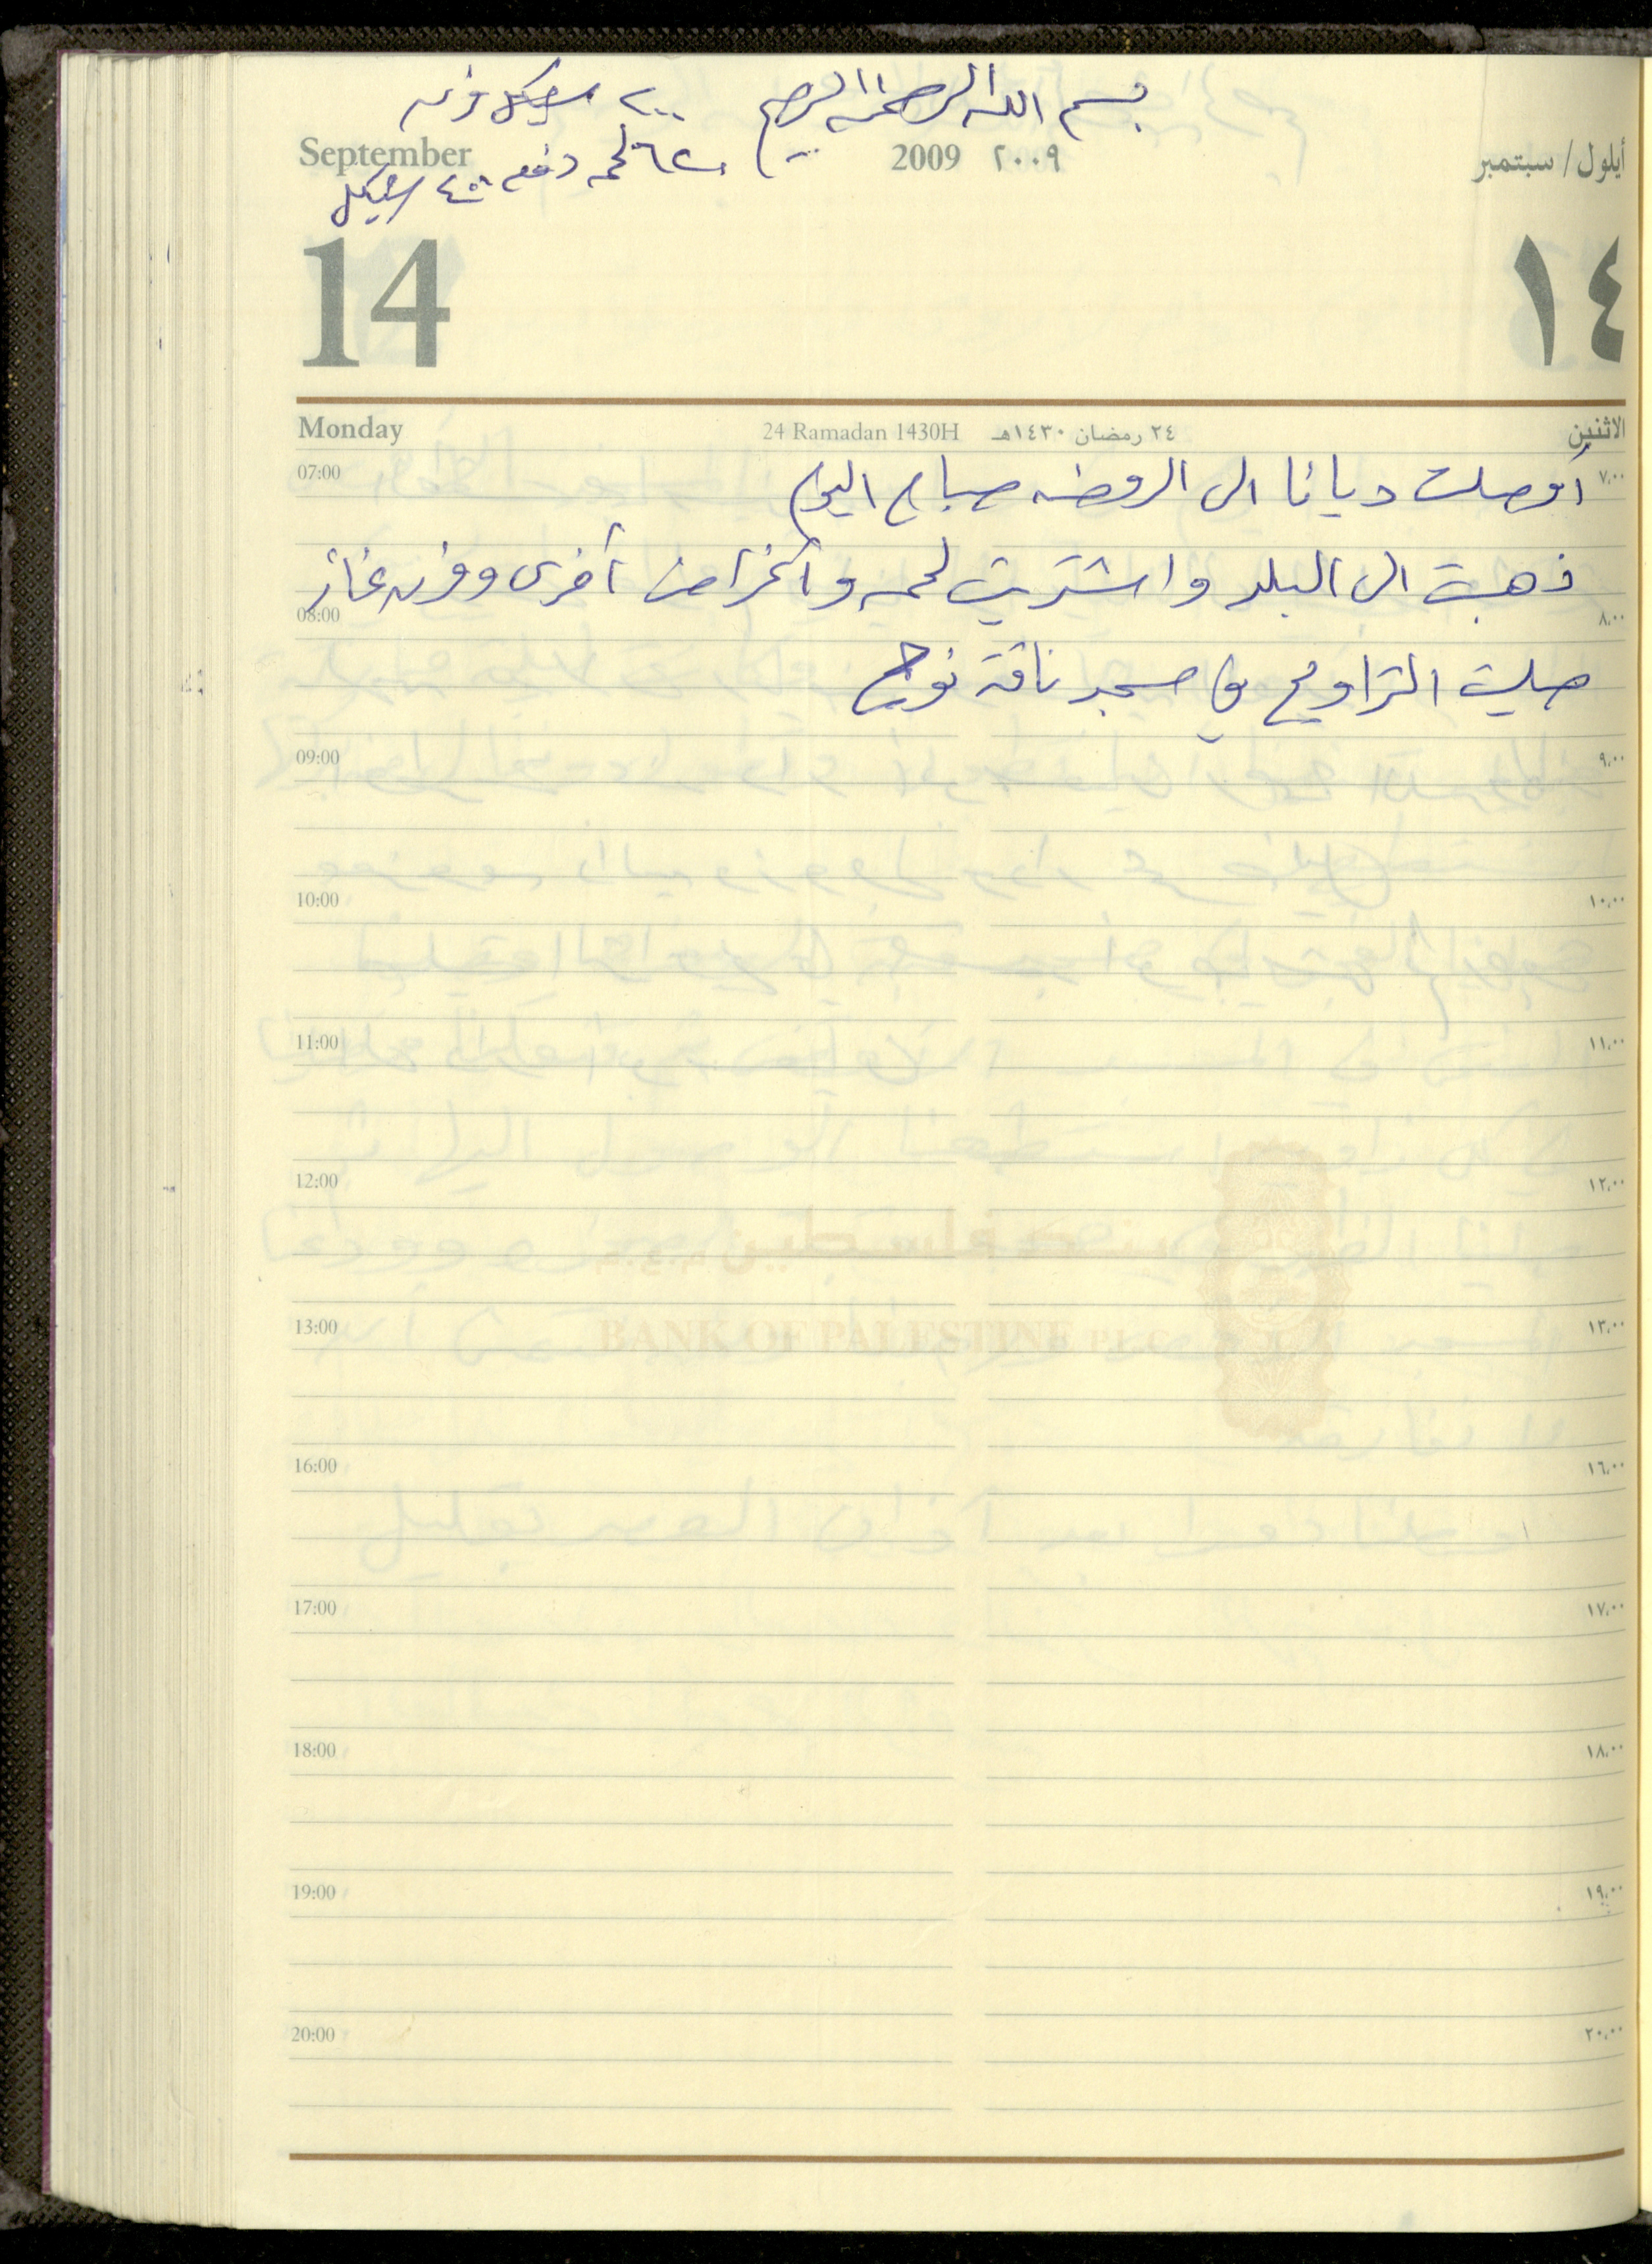 بسم الله الرحمن الرحيم ٢٠٠ شيكل فرن
لحمه دفعه ٤٥٠ شيكل
September 2009 ٢٠٠٩ أيلول / سبتمبر
14 ١٤
Monday 24 Ramadan 1430H ٢٤ رمضان ١٤٣٠هـ الاثنين
07:00 أوصلت ديانا الى الروضه صباح اليوم ٧،٠٠
ذهبت الى البلد واشتريت لحمه وأغراض أخرى وفرن غاز
08:00 ٨،٠٠
صليت التراويح في مسجد ناقة نوح
09:00 ٩،٠٠
10:00 ١٠،٠٠
11:00 ١١،٠٠
12:00 ١٢،٠٠
بنك فلسطين م.ع.م
13:00 BANK OF PALESTINE P.L.C ١٣،٠٠
16:00 ١٦،٠٠
17:00 ١٧،٠٠
18:00 ١٨،٠٠
19:00 ١٩،٠٠
20:00 ٢٠،٠٠